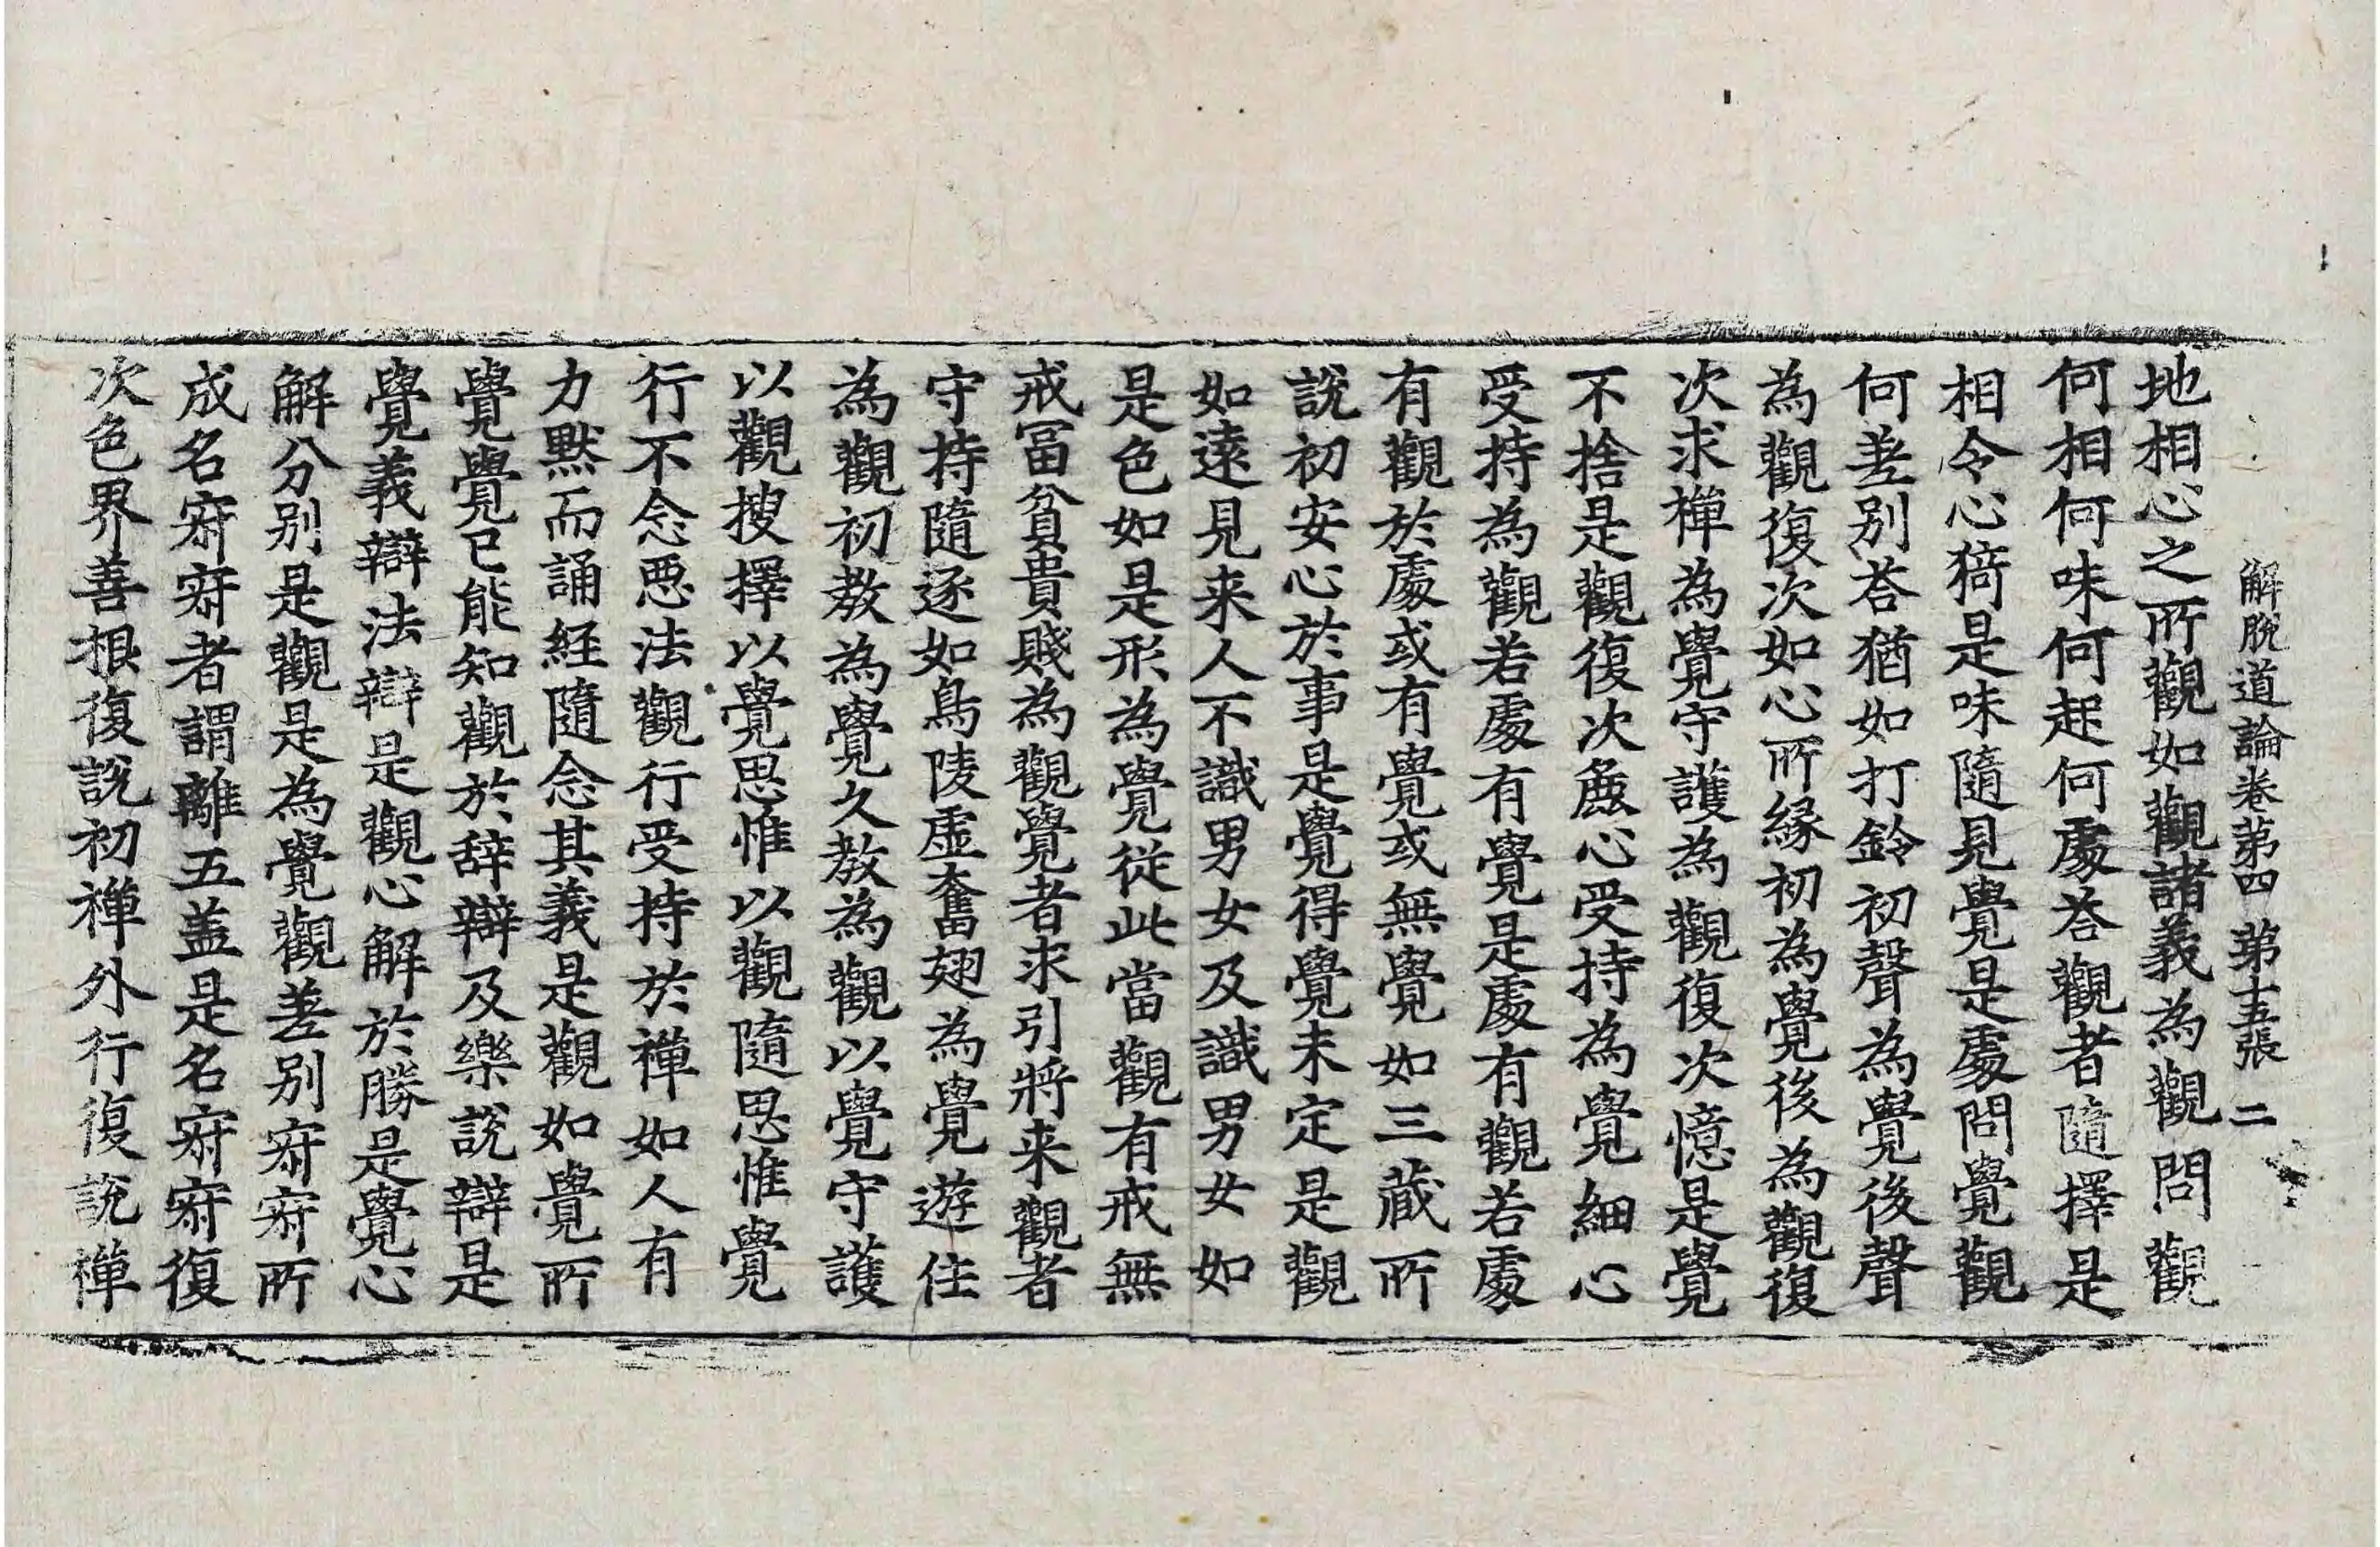 解脫道論卷第四 第十五張 二
地相心之所觀如觀諸義為觀問觀
何相何味何起何處荅觀者隨擇是
相令心猗是味隨見覺是處問覺觀
何差别荅猶如打鈴初聲為覺後聲
為觀復次如心所緣初為覺後為觀復
次求禪為覺守護為觀復次憶是覺
不捨是觀復次麁心受持為覺細心
受持為觀若處有覺是處有觀若處
有觀於處或有覺或無覺如三藏所
說初安心於事是覺得覺未定是觀
如遠見来人不識男女及識男女如
是色如是形為覺從此當觀有戒無
戒冨貧貴賤為觀覺者求引將来觀者
守持隨逐如鳥陵虛奮翅為覺遊住
為觀初教為覺久教為觀以覺守護
以觀搜擇以覺思惟以觀隨思惟覺
行不念惡法觀行受持於禪如人有
力黙而誦経隨念其義是觀如覺所
覺覺已能知觀於辞辯及樂說辯是
覺義辯法辯是觀心解於勝是覺心
解分别是觀是為覺觀差别寂寂所
成名寂寂者謂離五盖是名寂寂復
次色界善根復說初禪外行復說禪